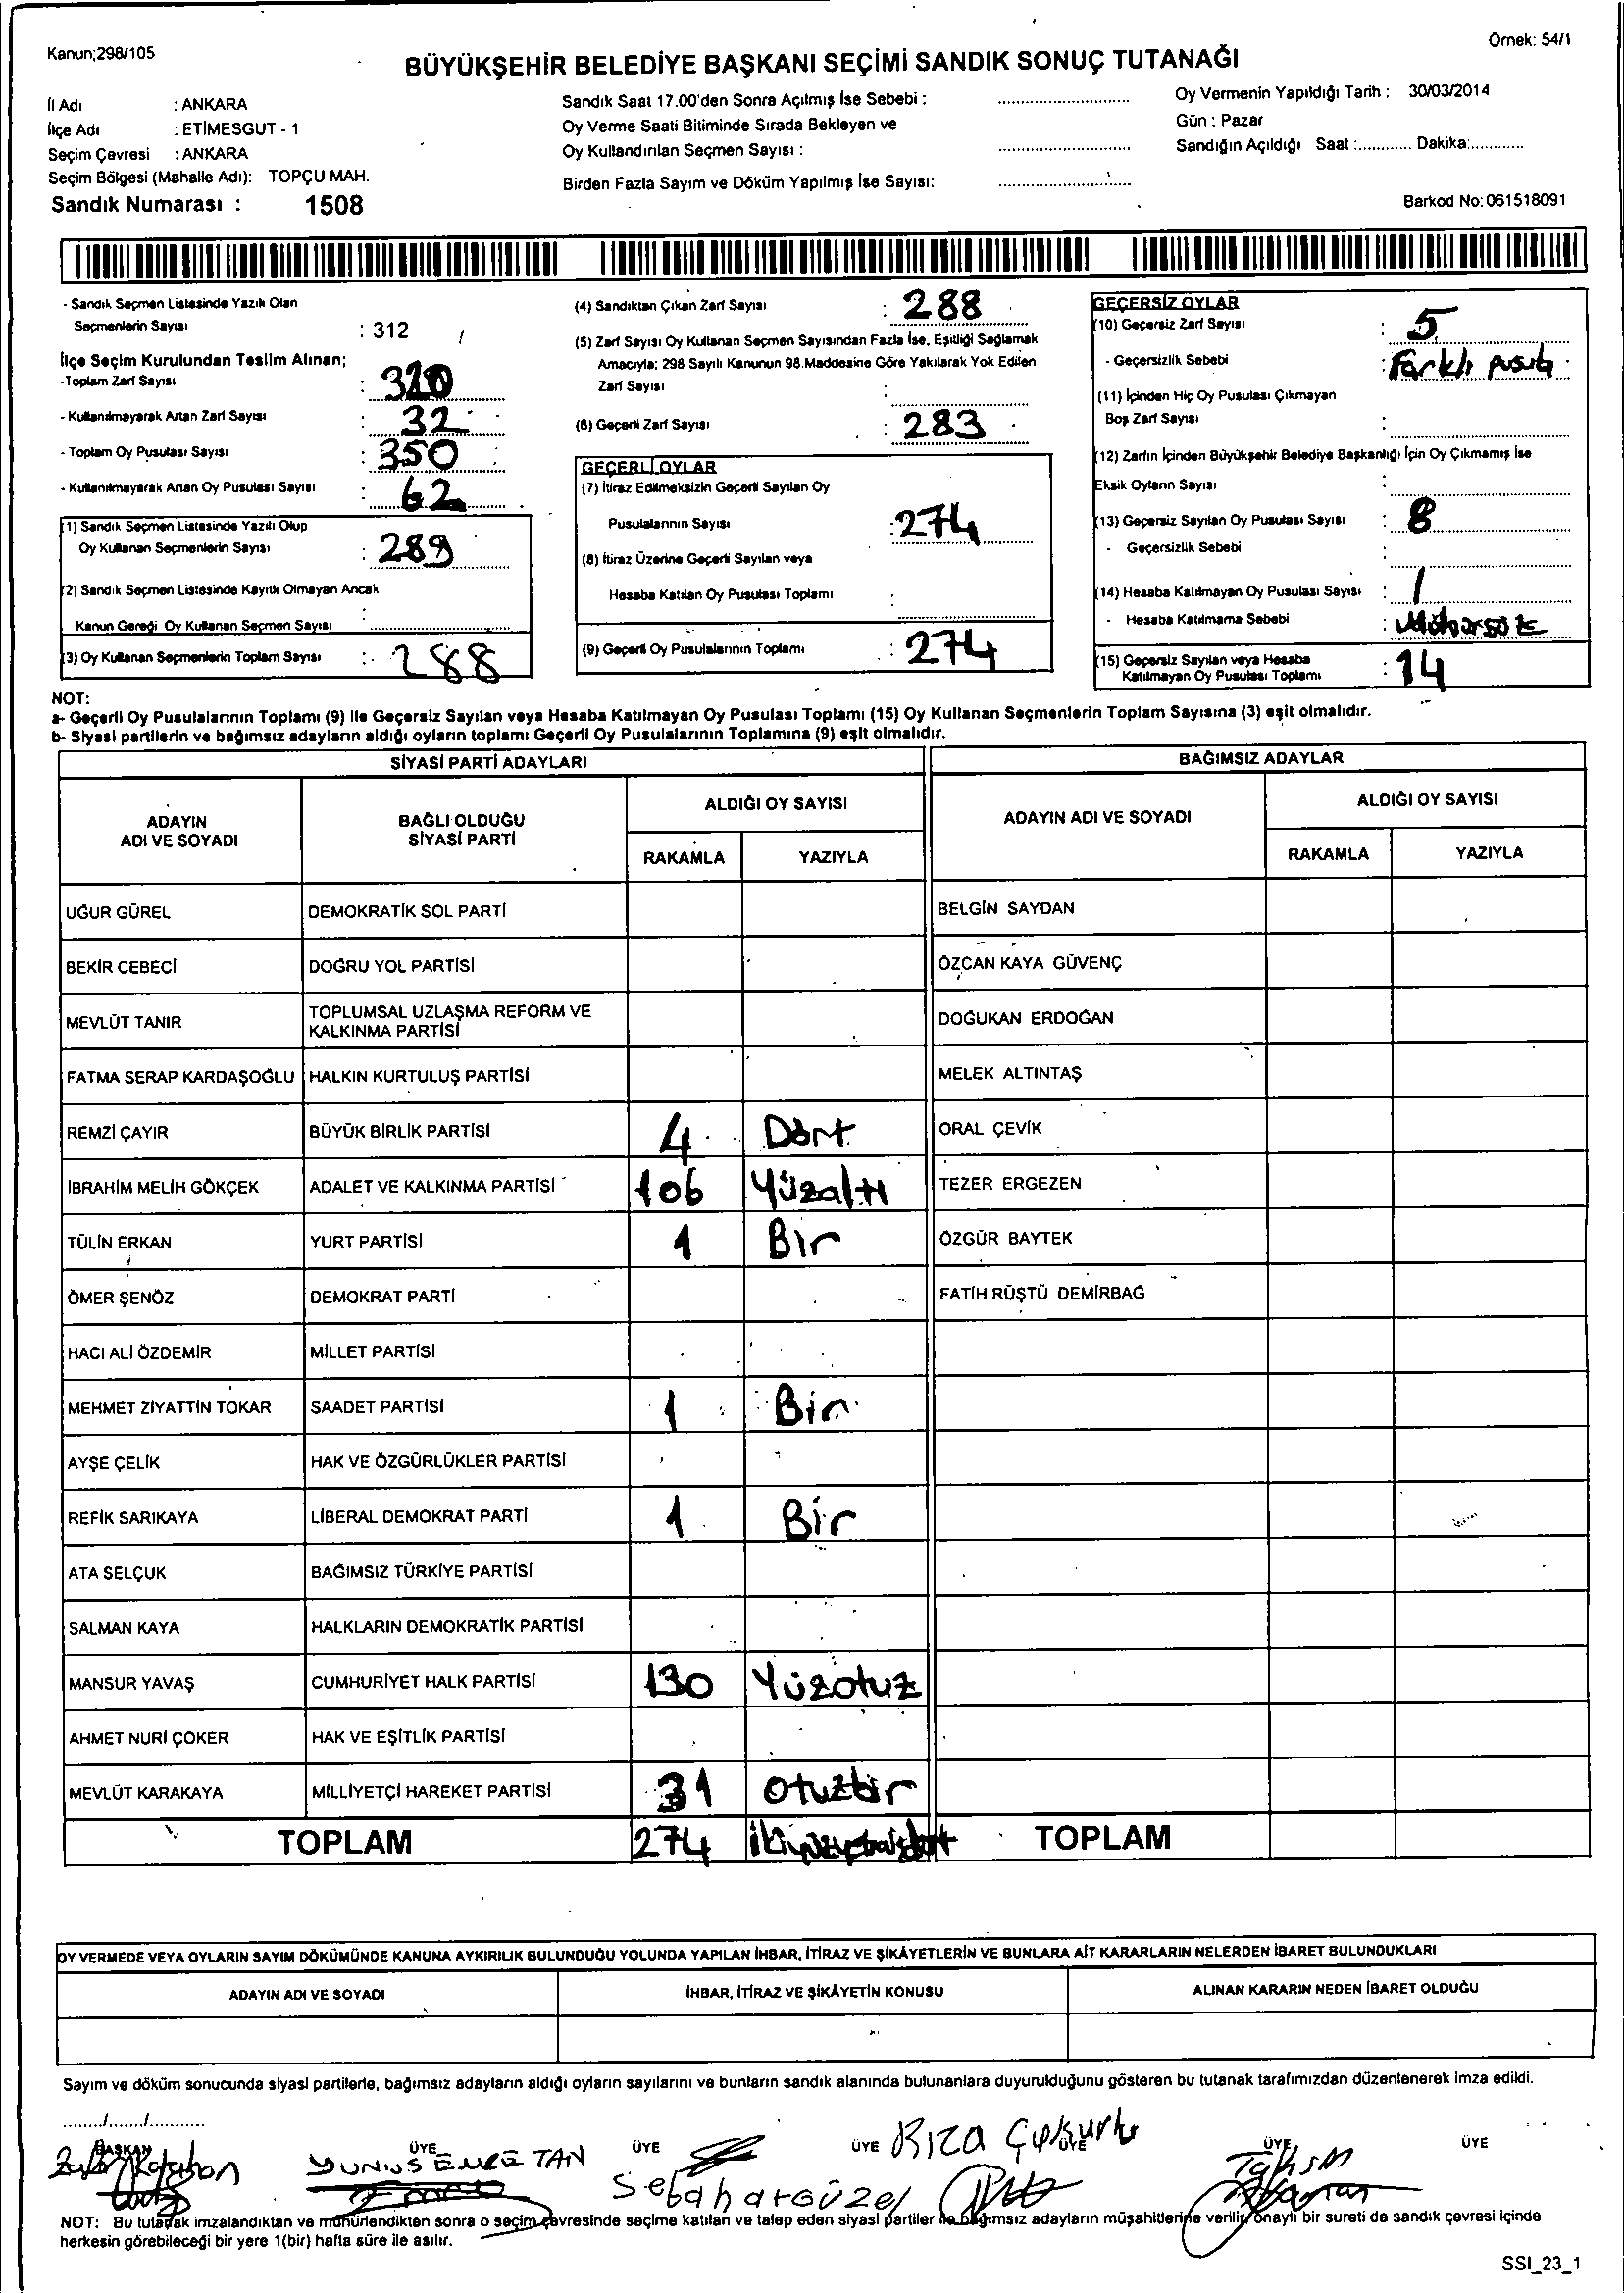 Kanun;298/105
Örnek: 54/1
BÜYÜKŞEHİR BELEDİYE BAŞKANI SEÇİMİ SANDIK SONUÇ TUTANAĞI
İl Adı : ANKARA
İlçe Adı : ETİMESGUT - 1
Seçim Çevresi : ANKARA
Seçim Bölgesi (Mahalle Adı): TOPÇU MAH.
Sandık Numarası : 1508
Sandık Saat 17.00'den Sonra Açılmış İse Sebebi :
Oy Verme Saati Bitiminde Sırada Bekleyen ve
Oy Kullandırılan Seçmen Sayısı :
Birden Fazla Sayım ve Döküm Yapılmış İse Sayısı:
Oy Vermenin Yapıldığı Tarih : 30/03/2014
Gün : Pazar
Sandığın Açıldığı Saat :............ Dakika:............
Barkod No: 061518091
- Sandık Seçmen Listesinde Yazılı Olan
Seçmenlerin Sayısı : 312
İlçe Seçim Kurulundan Teslim Alınan;
-Toplam Zarf Sayısı : 320
- Kullanılmayarak Artan Zarf Sayısı : 32
- Toplam Oy Pusulası Sayısı : 350
- Kullanılmayarak Artan Oy Pusulası Sayısı : 62
(1) Sandık Seçmen Listesinde Yazılı Olup
Oy Kullanan Seçmenlerin Sayısı : 289
(2) Sandık Seçmen Listesinde Kayıtlı Olmayan Ancak
Kanun Gereği Oy Kullanan Seçmen Sayısı :
(3) Oy Kullanan Seçmenlerin Toplam Sayısı : 288
(4) Sandıktan Çıkan Zarf Sayısı : 288
(5) Zarf Sayısı Oy Kullanan Seçmen Sayısından Fazla İse, Eşitliği Sağlamak
Amacıyla; 298 Sayılı Kanunun 98.Maddesine Göre Yakılarak Yok Edilen
Zarf Sayısı :
(6) Geçerli Zarf Sayısı : 283
GEÇERLİ OYLAR
(7) İtiraz Edilmeksizin Geçerli Sayılan Oy
Pusulalarının Sayısı : 274
(8) İtiraz Üzerine Geçerli Sayılan veya
Hesaba Katılan Oy Pusulası Toplamı :
(9) Geçerli Oy Pusulalarının Toplamı : 274
GEÇERSİZ OYLAR
(10) Geçersiz Zarf Sayısı : 5
- Geçersizlik Sebebi : Farklı pusula
(11) İçinden Hiç Oy Pusulası Çıkmayan
Boş Zarf Sayısı :
(12) Zarfın İçinden Büyükşehir Belediye Başkanlığı İçin Oy Çıkmamış İse
Eksik Oyların Sayısı :
(13) Geçersiz Sayılan Oy Pusulası Sayısı : 8
- Geçersizlik Sebebi :
(14) Hesaba Katılmayan Oy Pusulası Sayısı : 1
- Hesaba Katılmama Sebebi : Mühürsüz
(15) Geçersiz Sayılan veya Hesaba
Katılmayan Oy Pusulası Toplamı : 14
NOT:
a- Geçerli Oy Pusulalarının Toplamı (9) ile Geçersiz Sayılan veya Hesaba Katılmayan Oy Pusulası Toplamı (15) Oy Kullanan Seçmenlerin Toplam Sayısına (3) eşit olmalıdır.
b- Siyasi partilerin ve bağımsız adayların aldığı oyların toplamı Geçerli Oy Pusulalarının Toplamına (9) eşit olmalıdır.
SİYASİ PARTİ ADAYLARI BAĞIMSIZ ADAYLAR
ADAYIN ADI VE SOYADI
BAĞLI OLDUĞU SİYASİ PARTİ
ALDIĞI OY SAYISI
RAKAMLA YAZIYLA
ADAYIN ADI VE SOYADI
ALDIĞI OY SAYISI
RAKAMLA YAZIYLA
UĞUR GÜREL DEMOKRATİK SOL PARTİ BELGİN SAYDAN
BEKİR CEBECİ DOĞRU YOL PARTİSİ ÖZCAN KAYA GÜVENÇ
MEVLÜT TANIR TOPLUMSAL UZLAŞMA REFORM VE KALKINMA PARTİSİ DOĞUKAN ERDOĞAN
FATMA SERAP KARDAŞOĞLU HALKIN KURTULUŞ PARTİSİ MELEK ALTINTAŞ
REMZİ ÇAYIR BÜYÜK BİRLİK PARTİSİ 4 Dört ORAL ÇEVİK
İBRAHİM MELİH GÖKÇEK ADALET VE KALKINMA PARTİSİ 106 Yüzaltı TEZER ERGEZEN
TÜLİN ERKAN YURT PARTİSİ 1 Bir ÖZGÜR BAYTEK
ÖMER ŞENÖZ DEMOKRAT PARTİ FATİH RÜŞTÜ DEMİRBAĞ
HACI ALİ ÖZDEMİR MİLLET PARTİSİ
MEHMET ZİYATTİN TOKAR SAADET PARTİSİ 1 Bir
AYŞE ÇELİK HAK VE ÖZGÜRLÜKLER PARTİSİ
REFİK SARIKAYA LİBERAL DEMOKRAT PARTİ 1 Bir
ATA SELÇUK BAĞIMSIZ TÜRKİYE PARTİSİ
SALMAN KAYA HALKLARIN DEMOKRATİK PARTİSİ
MANSUR YAVAŞ CUMHURİYET HALK PARTİSİ 130 Yüzotuz
AHMET NURİ ÇOKER HAK VE EŞİTLİK PARTİSİ
MEVLÜT KARAKAYA MİLLİYETÇİ HAREKET PARTİSİ 31 otuzbir
TOPLAM 274 TOPLAM
OY VERMEDE VEYA OYLARIN SAYIM DÖKÜMÜNDE KANUNA AYKIRILIK BULUNDUĞU YOLUNDA YAPILAN İHBAR, İTİRAZ VE ŞİKÂYETLERİN VE BUNLARA AİT KARARLARIN NELERDEN İBARET BULUNDUKLARI
ADAYIN ADI VE SOYADI İHBAR, İTİRAZ VE ŞİKÂYETİN KONUSU ALINAN KARARIN NEDEN İBARET OLDUĞU
Sayım ve döküm sonucunda siyasi partilerle, bağımsız adayların aldığı oyların sayılarını ve bunların sandık alanında bulunanlara duyurulduğunu gösteren bu tutanak tarafımızdan düzenlenerek imza edildi.
......../......../............
BAŞKAN ÜYE ÜYE ÜYE ÜYE ÜYE ÜYE
YUNUS EMRE TAN
Rıza
Sebahat Güzel
NOT: Bu tutanak imzalandıktan ve mühürlendikten sonra o seçim çevresinde seçime katılan ve talep eden siyasi partiler ile bağımsız adayların müşahitlerine verilir, onaylı bir sureti de sandık çevresi içinde
herkesin görebileceği bir yere 1(bir) hafta süre ile asılır.
SSI_23_1